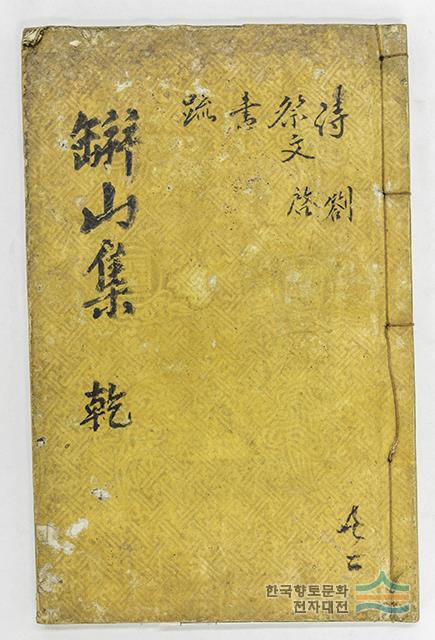 詩 劄
祭文 啓
書
疏
缾山集 乾
共二
한국향토문화
전자대전